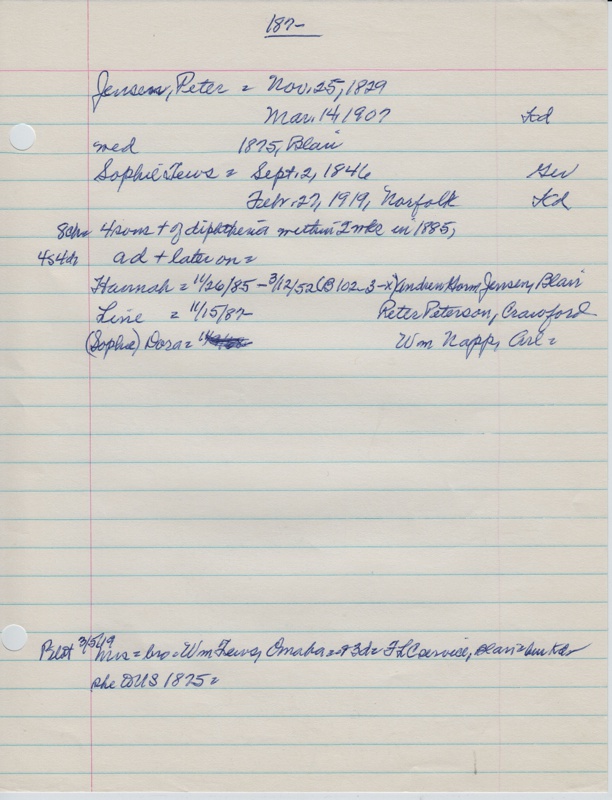 187-
Jensen, Peter = Nov. 25, 1829
Mar. 14, 1907 Kd
med 1875, Blair
Sophie Tews = Sept. 2, 1846 Ger
Febr. 27, 1919, Norfolk Kd
8ch= 4 sons + of diphtheria within 2 wks in 1885,
4s4d= a d + later on =
Hannah = 11/26/85 - 3/12/52 (B 102-3-x) Andrew Horm Jensen, Blair
Line = 11/15/87 Peter Peterson, Crawford
(Sophie) Dora = Wm Napp, Arl =
Pilot 3/5/19 Mrs = bro = Wm Tews, Omaha = + 3d = FLC service, Blair =
she to US 1875 =